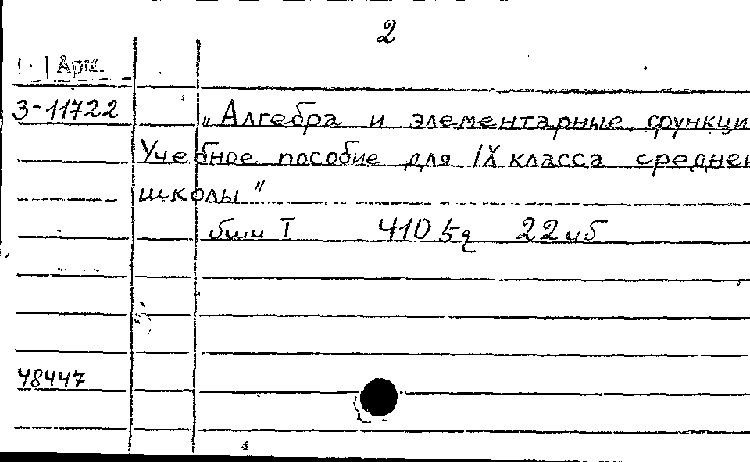 2
Арх.
3-11722
„Алгебра и элементарные функци
Учебное пособие для IX класса средней
школы"
I 410 22
48447